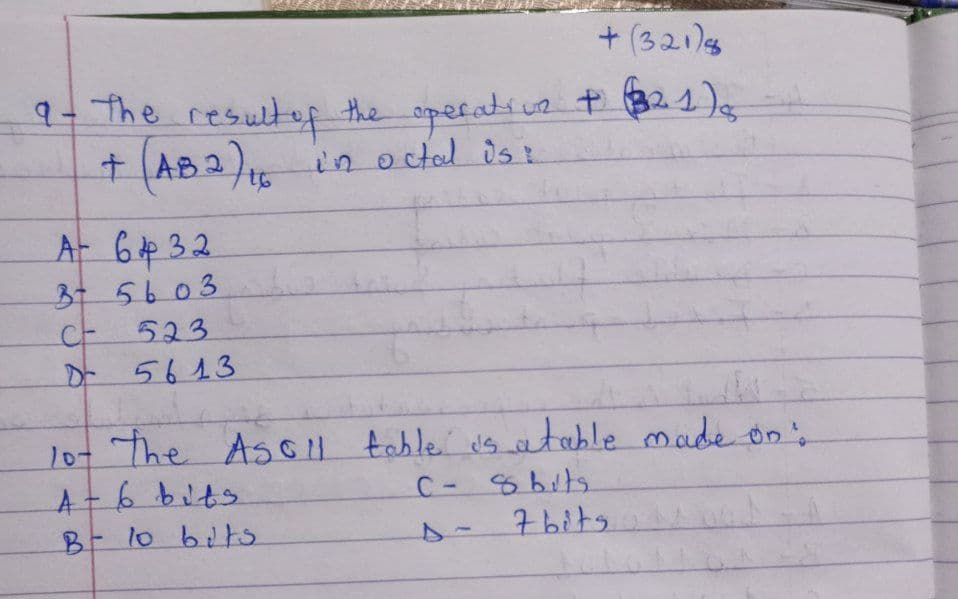 + (321)8
9- The result of the operation + (321)8
+ (AB2)16 in octal is:
A- 6432
B- 5603
C- 523
D- 5613
10- The ASCII table is a table made on:
A- 6 bits C- 8 bits
B- 10 bits D- 7 bits